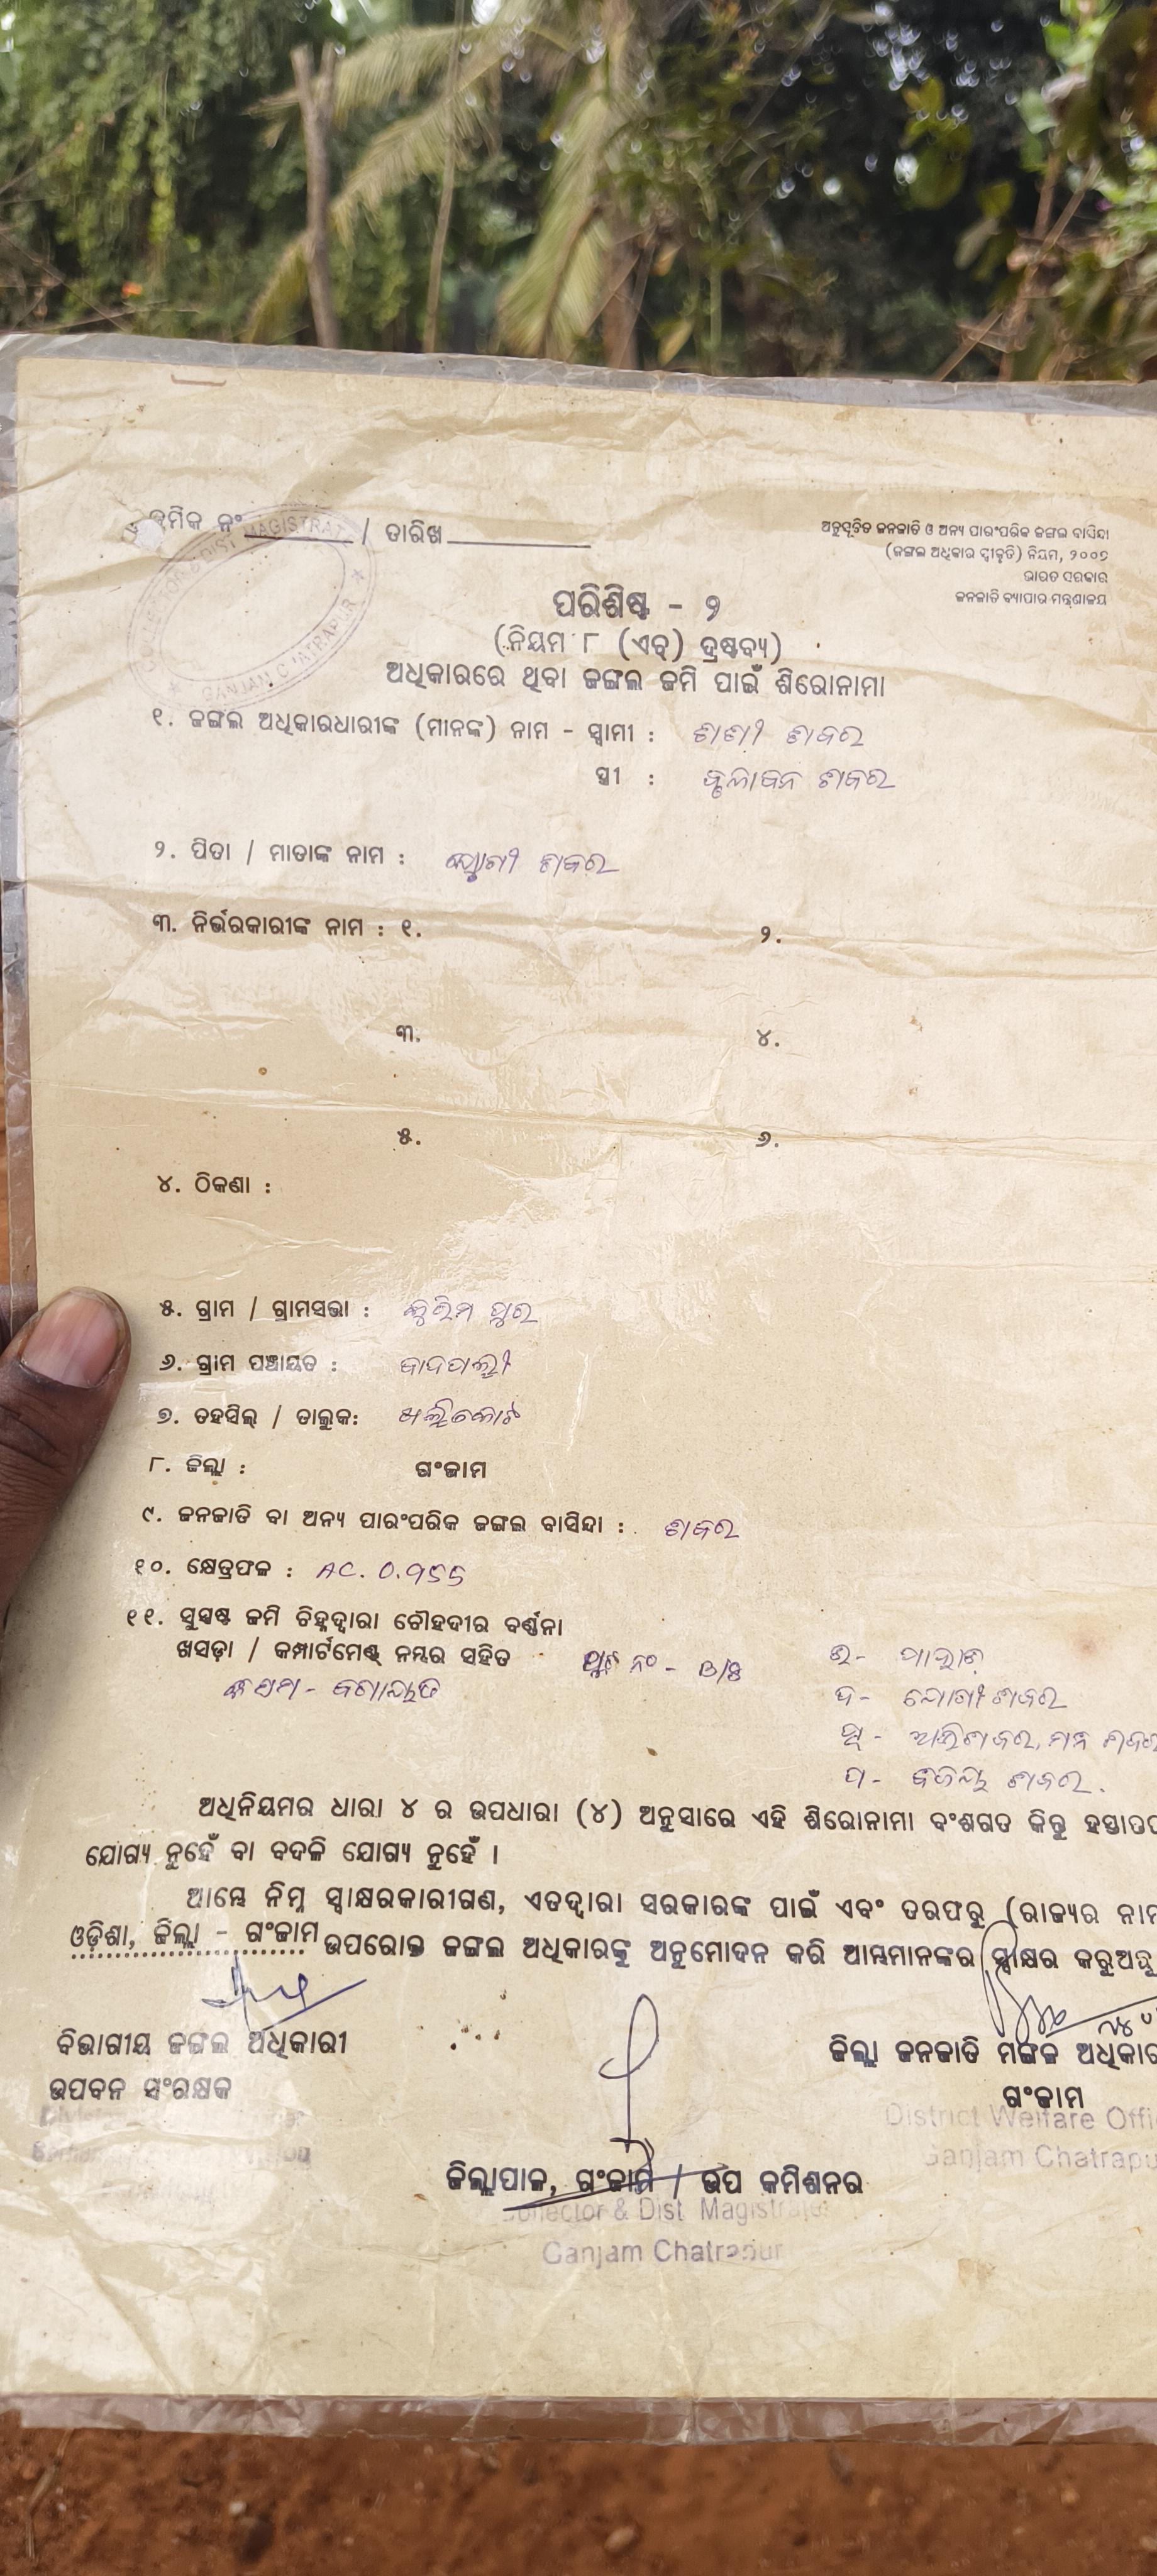 କ୍ରମିକ ନଂ ________ / ତାରିଖ ____________
ଅନୁସୂଚିତ ଜନଜାତି ଓ ଅନ୍ୟ ପାରଂପରିକ ଜଙ୍ଗଲ ବାସିନ୍ଦା
(ଜଙ୍ଗଲ ଅଧିକାର ସ୍ୱୀକୃତି) ନିୟମ, ୨୦୦୭
ଭାରତ ସରକାର
ଜନଜାତି ବ୍ୟାପାର ମନ୍ତ୍ରଣାଳୟ
ପରିଶିଷ୍ଟ - ୨
(ନିୟମ ୮ (ଏଚ୍) ଦ୍ରଷ୍ଟବ୍ୟ)
GANJAM CHATRAPUR
ଅଧିକାରରେ ଥିବା ଜଙ୍ଗଲ ଜମି ପାଇଁ ଶିରୋନାମା
୧. ଜଙ୍ଗଲ ଅଧିକାରଧାରୀଙ୍କ (ମାନଙ୍କ) ନାମ - ସ୍ୱାମୀ : ଶଶୀ ଶବର
ସ୍ତ୍ରୀ : ଶବର
୨. ପିତା / ମାତାଙ୍କ ନାମ : ଶବର
୩. ନିର୍ଭରକାରୀଙ୍କ ନାମ : ୧. ୨.
୩. ୪.
୫. ୬.
୪. ଠିକଣା :
୫. ଗ୍ରାମ / ଗ୍ରାମସଭା : ପୁର
୬. ଗ୍ରାମ ପଞ୍ଚାୟତ :
୭. ତହସିଲ୍ / ତାଲୁକ: ଖଲ୍ଲିକୋଟ
୮. ଜିଲ୍ଲା : ଗଂଜାମ
୯. ଜନଜାତି ବା ଅନ୍ୟ ପାରଂପରିକ ଜଙ୍ଗଲ ବାସିନ୍ଦା : ଶବର
୧୦. କ୍ଷେତ୍ରଫଳ : AC. 0.955
୧୧. ସୁସ୍ପଷ୍ଟ ଜମି ଚିହ୍ନଦ୍ୱାରା ଚୌହଦୀର ବର୍ଣ୍ଣନା
ଖସଡ଼ା / କମ୍ପାର୍ଟମେଣ୍ଟ୍ ନମ୍ବର ସହିତ ପ୍ଲଟ ନଂ -
ଉ - ପାହାଡ଼
ଦ - ଯୋଗୀ ଶବର
ପୂ - ଶବର,
ପ - ଶବର.
ଅଧିନିୟମର ଧାରା ୪ ର ଉପଧାରା (୪) ଅନୁସାରେ ଏହି ଶିରୋନାମା ବଂଶଗତ କିନ୍ତୁ
ଯୋଗ୍ୟ ନୁହେଁ ବା ବଦଳି ଯୋଗ୍ୟ ନୁହେଁ ।
ଆମ୍ଭେ ନିମ୍ନ ସ୍ୱାକ୍ଷରକାରୀଗଣ, ଏତଦ୍ୱାରା ସରକାରଙ୍କ ପାଇଁ ଏବଂ ତରଫରୁ (ରାଜ୍ୟର ନାମ
ଓଡ଼ିଶା, ଜିଲ୍ଲା - ଗଂଜାମ ଉପରୋକ୍ତ ଜଙ୍ଗଲ ଅଧିକାରଙ୍କୁ ଅନୁମୋଦନ କରି ଆମ୍ଭମାନଙ୍କର ସ୍ୱାକ୍ଷର କରୁଅଛୁ
ବିଭାଗୀୟ ଜଙ୍ଗଲ ଅଧିକାରୀ
ଉପବନ ସଂରକ୍ଷକ
ଜିଲ୍ଲା ଜନଜାତି ମଙ୍ଗଳ
ଗଂଜାମ
District Welfare
Ganjam
ଜିଲ୍ଲାପାଳ, ଗଂଜାମ / ଉପ କମିଶନର
Collector & Dist. Magistrate
Ganjam Chatrapur